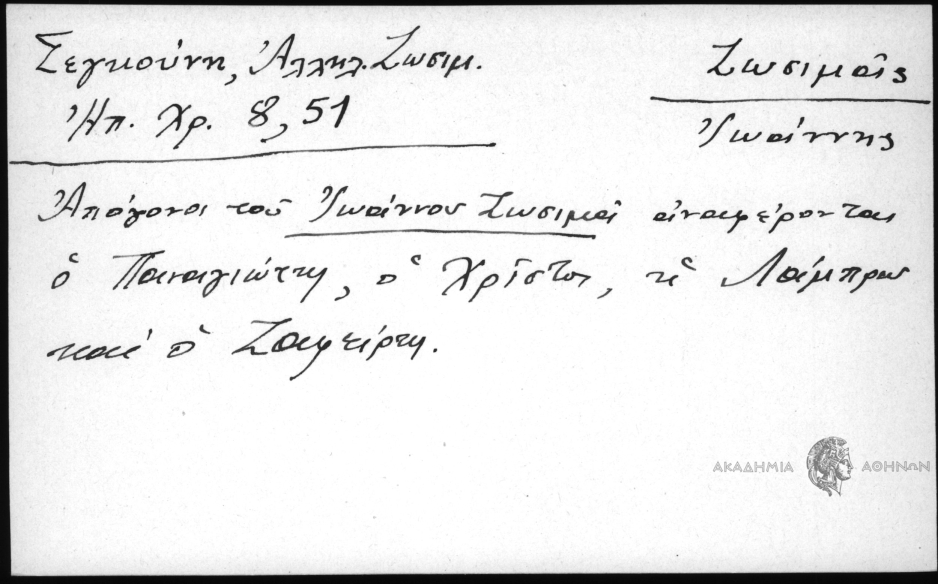 Σεγκούνη, Ἀλληλ. Ζωσιμ.
Ἠπ. Χρ. 8, 51
Ζωσιμᾶς
Ἰωάννης
Ἀπόγονοι τοῦ Ἰωάννου Ζωσιμᾶ ἀναφέρονται
ὁ Παναγιώτης, ὁ Χρῖστος, ὁ Λάμπρος
καὶ ὁ Ζαφείρης.
ΑΚΑΔΗΜΙΑ ΑΘΗΝΩΝ